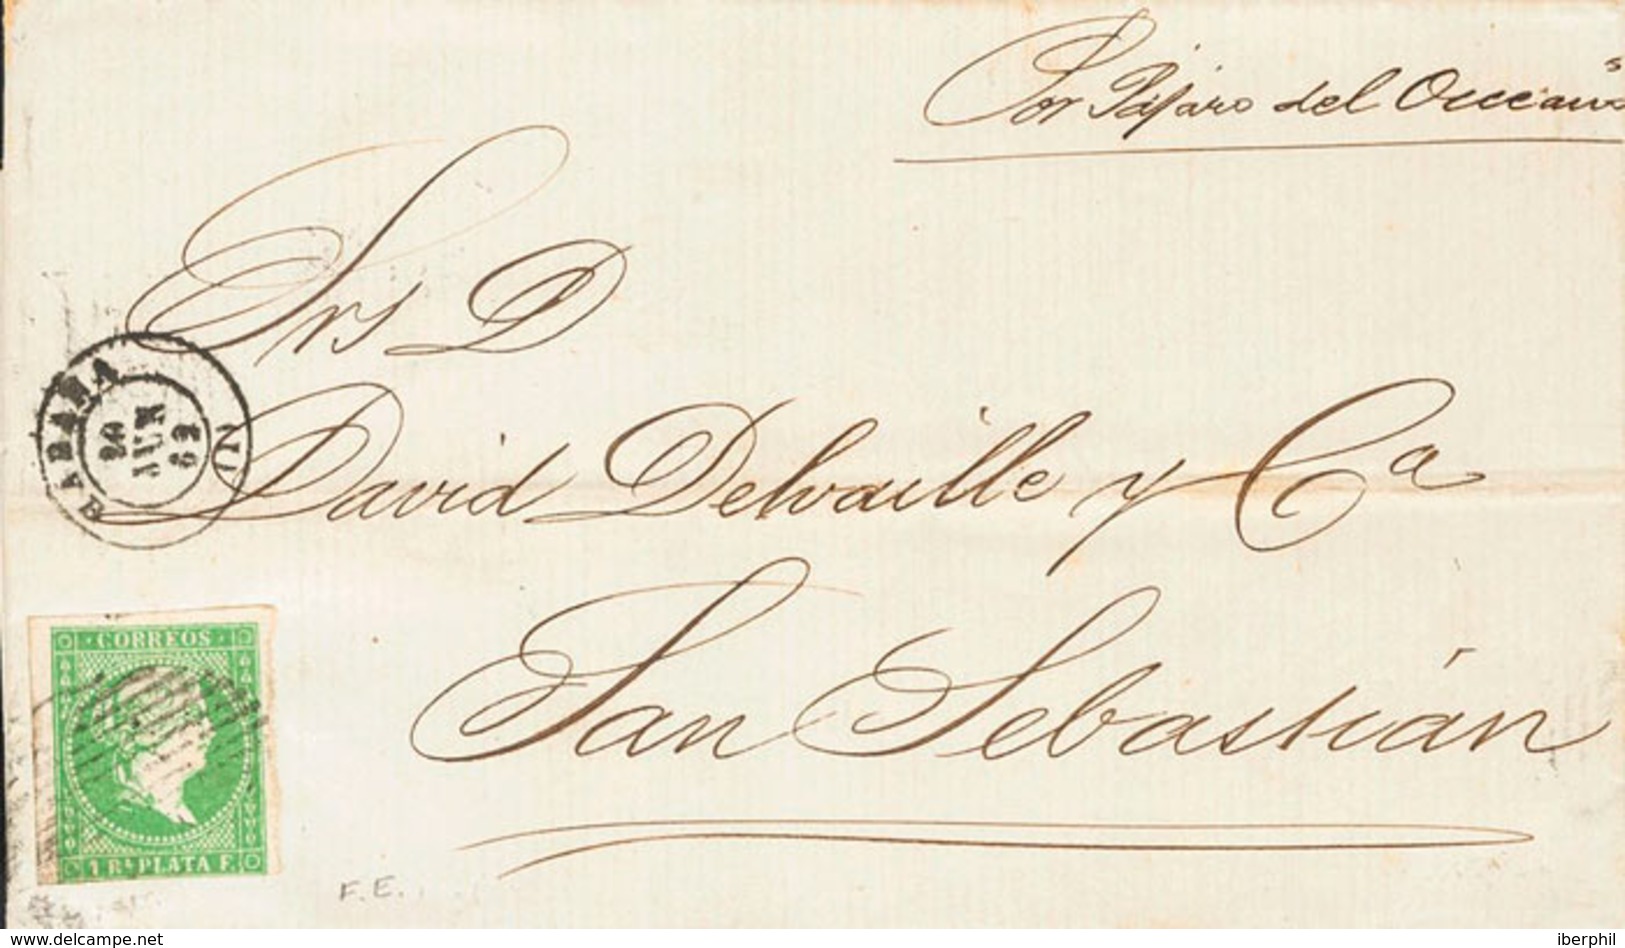 Por Pájaro del Occeano
Srs D
David Delvaille y Ca
San Sebastián
HABANA
20
JUN
62
CORREOS
1 Rl. PLATA F.
F.E.
www.delcampe.net
iberphil